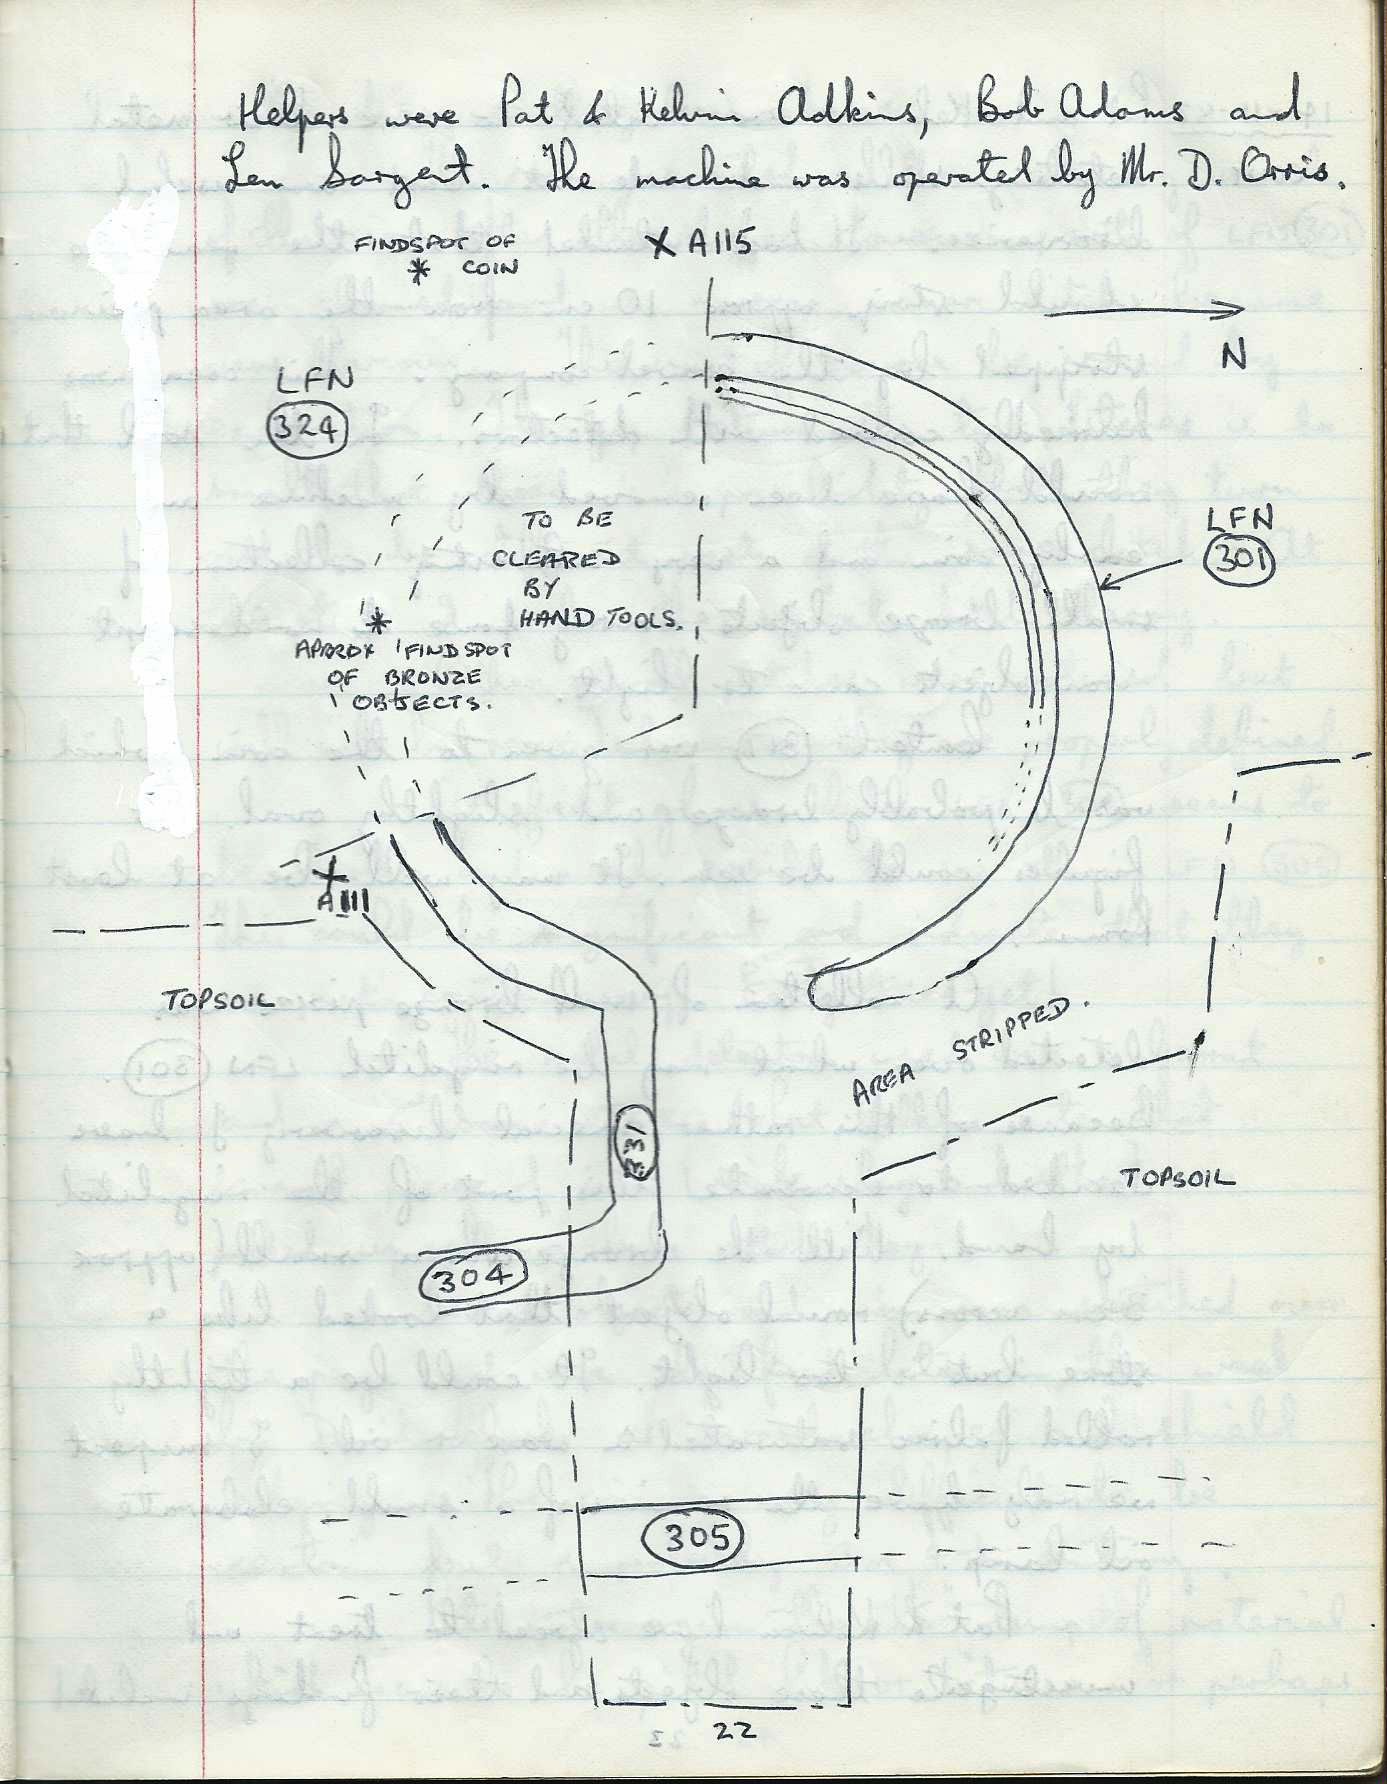 Helpers were Pat & Kelvin Adkins, Bob Adams and
Len Sargent. The machine was operated by Mr. D. Orris.
FINDSPOT OF
* COIN
X A115
N
LFN
324
LFN
301
TO BE
CLEARED
BY
HAND TOOLS.
*
APPROX FINDSPOT
OF BRONZE
OBJECTS.
X
A111
TOPSOIL
AREA STRIPPED.
331
TOPSOIL
304
305
22